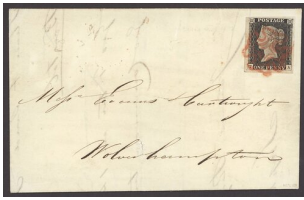 POSTAGE
ONE PENNY
Messrs Cartwright
Wolverhampton